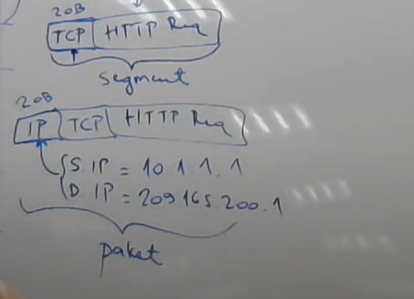 20B
TCP HTTP Req
segment
20B
IP TCP HTTP Req
S IP = 10.1.1.1
D IP = 209.165.200.1
paket